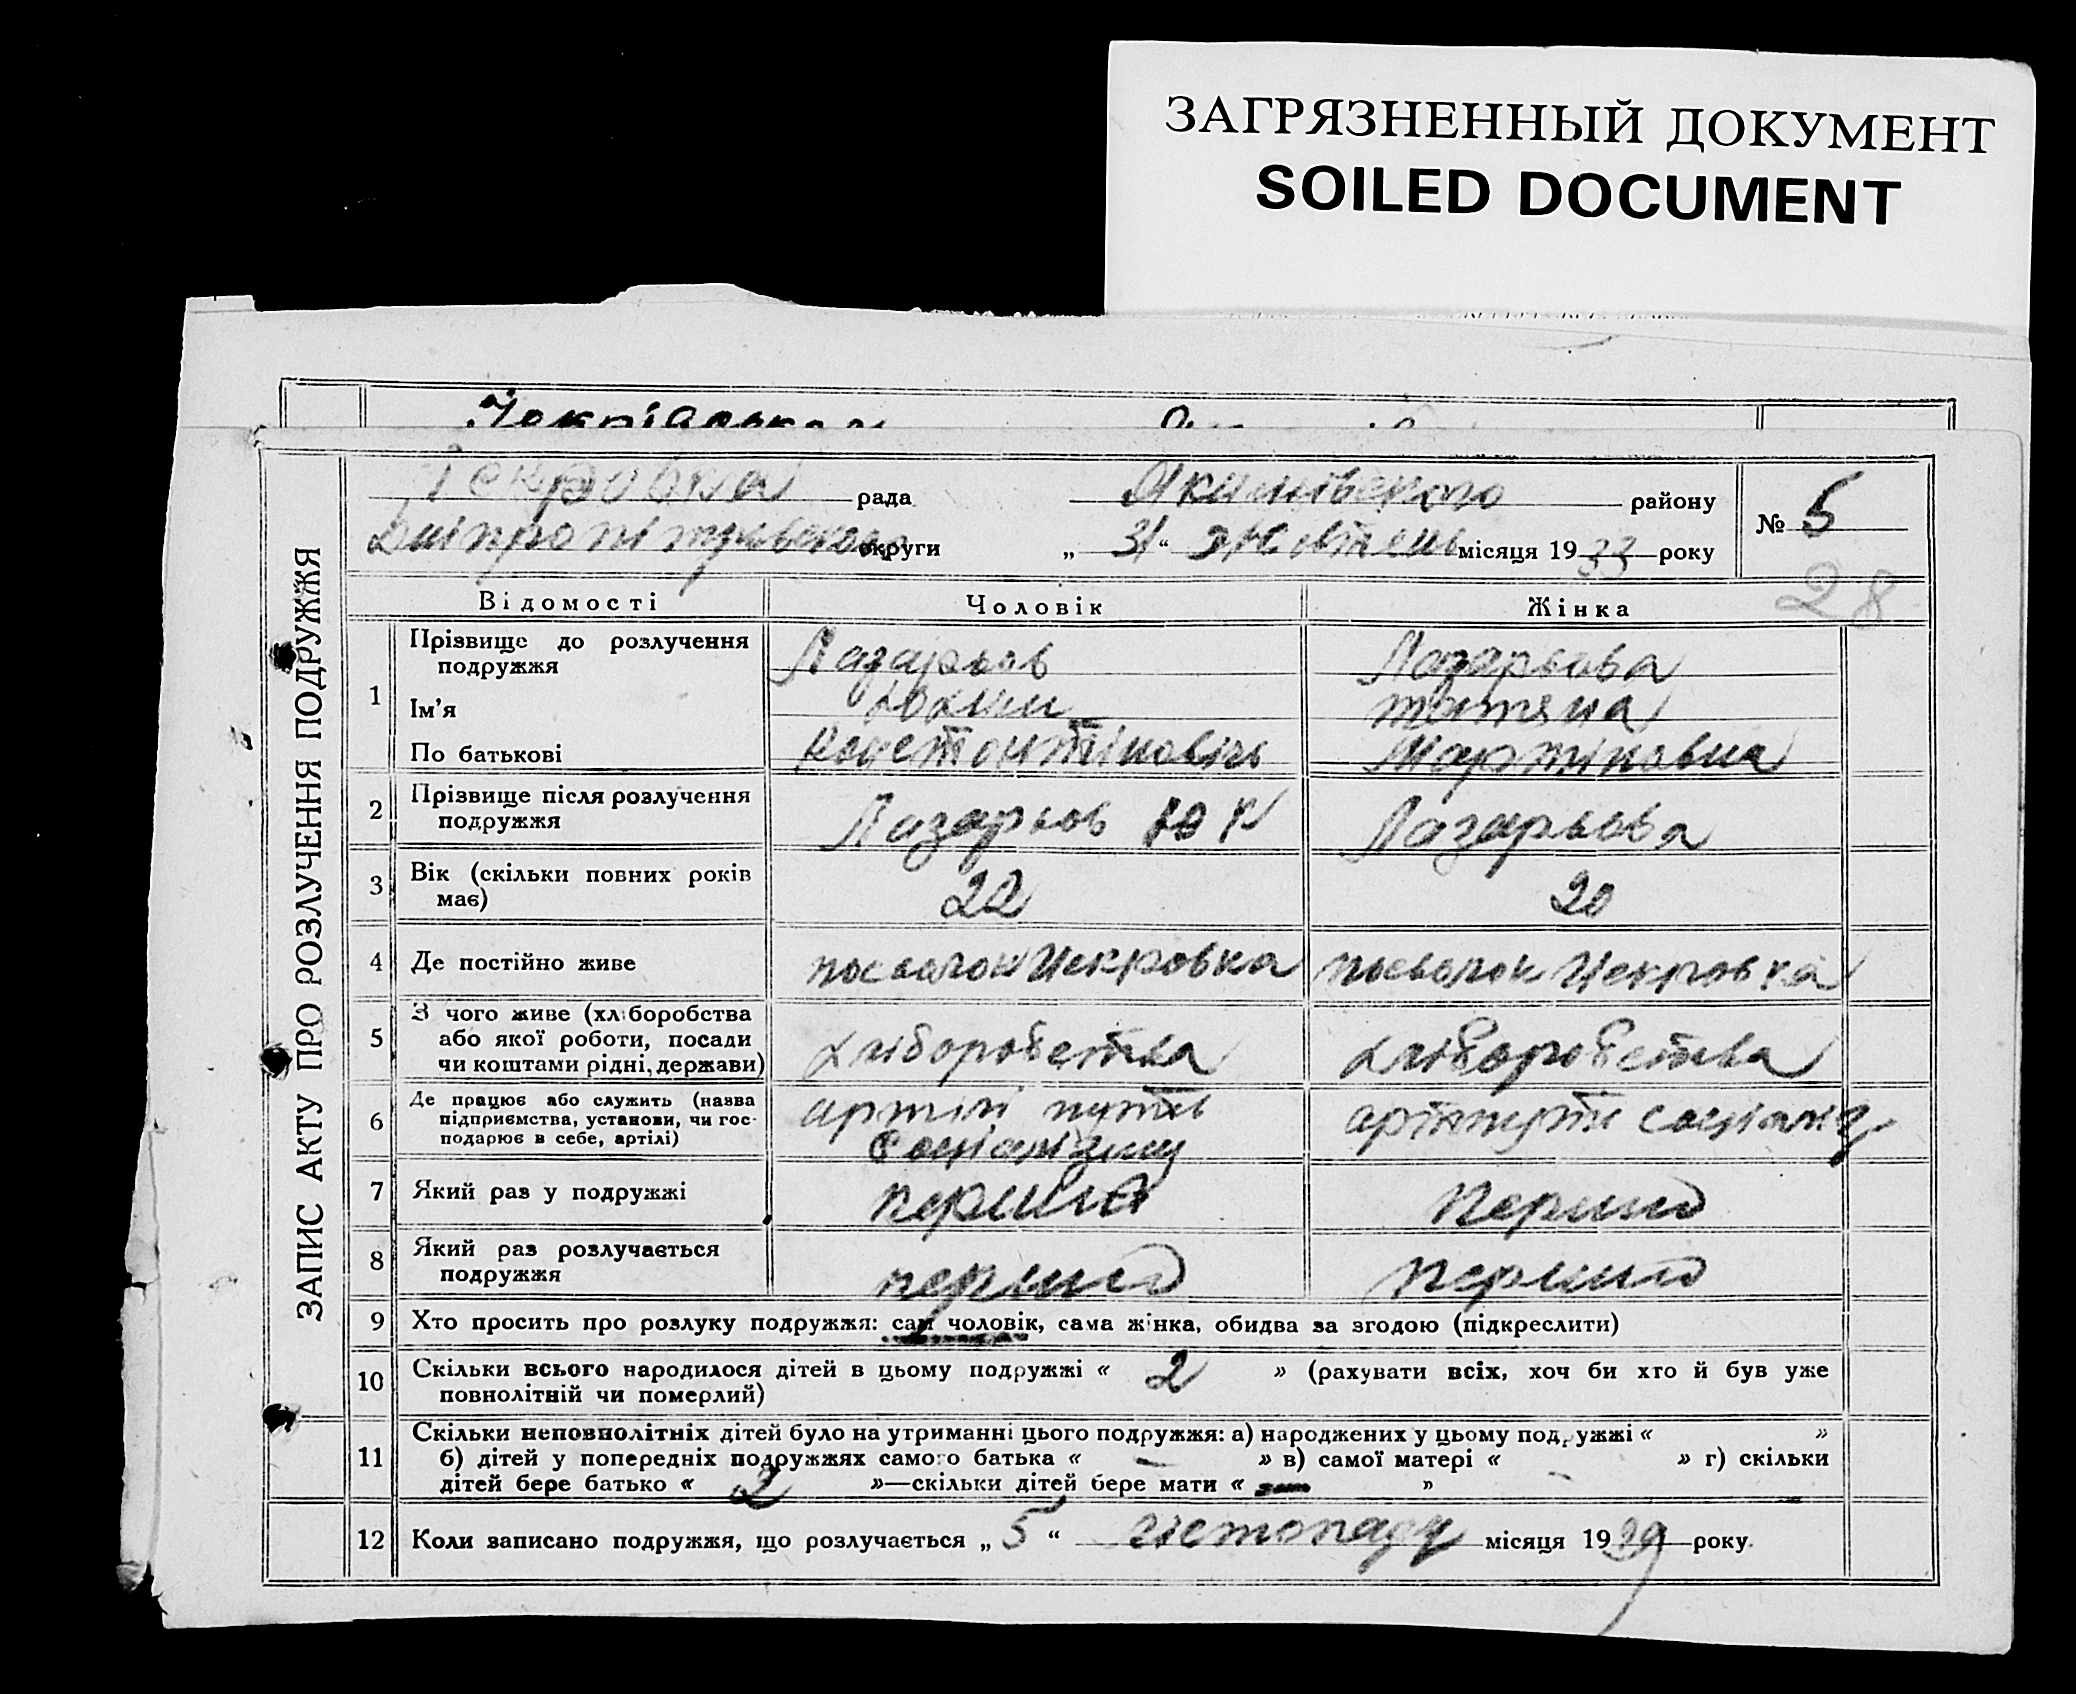 ЗАГРЯЗНЕННЫЙ ДОКУМЕНТ
SOILED DOCUMENT
ЗАПИС АКТУ ПРО РОЗЛУЧЕННЯ ПОДРУЖЖЯ
рада Якимівского району № 5
округи „ 31 “ жовтень місяця 1933 року
28
Відомості Чоловік Жінка
1 Прізвище до розлучення Лазарьов Лазарьова
подружжя
Ім’я татяна
По батькові Костонтіновічь Мартіновна
2 Прізвище після розлучення Лазарьов Ю К Лазарьова
подружжя
3 Вік (скільки повних років 22 20
має)
4 Де постійно живе посьолок Чекровка посьолок Чекровка
5 З чого живе (хліборобства хліборобства хліборобства
або якої роботи, посади
чи коштами рідні, держави)
6 Де працює або служить (назва артілі путь
підприємства, установи, чи гос- соціалізму
подарює в себе, артілі)
7 Який раз у подружжі перший перший
8 Який раз розлучається перший перший
подружжя
9 Хто просить про розлуку подружжя: сам чоловік, сама жінка, обидва за згодою (підкреслити)
10 Скільки всього народилося дітей в цьому подружжі « 2 » (рахувати всіх, хоч би хто й був уже
повнолітній чи померлий)
11 Скільки неповнолітніх дітей було на утриманні цього подружжя: а) народжених у цьому подружжі « »
б) дітей у попередніх подружжях самого батька « – » в) самої матері « – » г) скільки
дітей бере батько « 2 »—скільки дітей бере мати « »
12 Коли записано подружжя, що розлучається „ 5 “ листопаду місяця 1929 року